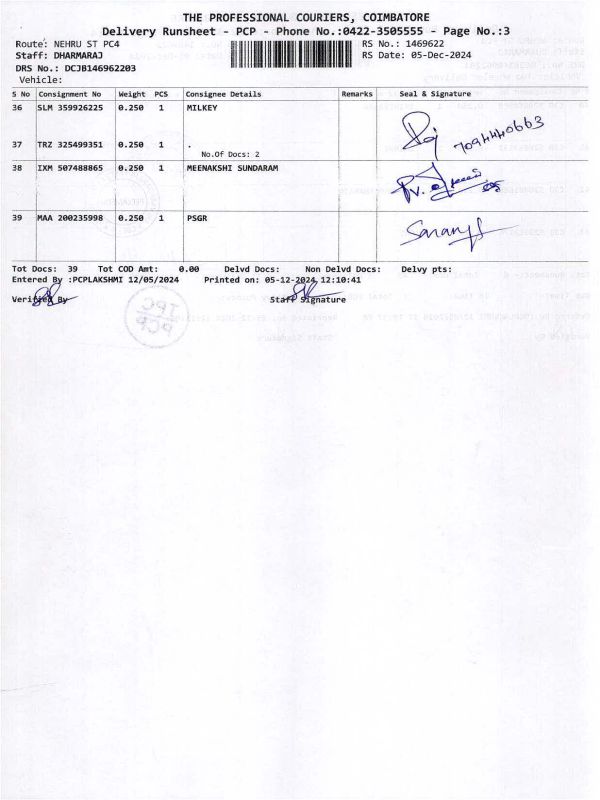 THE PROFESSIONAL COURIERS, COIMBATORE
Delivery Runsheet - PCP - Phone No.:0422-3505555 - Page No.:3
Route: NEHRU ST PC4 RS No.: 1469622
Staff: DHARMARAJ RS Date: 05-Dec-2024
DRS No.: DCJB146962203
Vehicle:
S No Consignment No Weight PCS Consignee Details Remarks Seal & Signature
36 SLM 359926225 0.250 1 MILKEY
7094440663
37 TRZ 325499351 0.250 1 .
No.Of Docs: 2
38 IXM 507488865 0.250 1 MEENAKSHI SUNDARAM
39 MAA 200235998 0.250 1 PSGR
Tot Docs: 39 Tot COD Amt: 0.00 Delvd Docs: Non Delvd Docs: Delvy pts:
Entered By :PCPLAKSHMI 12/05/2024 Printed on: 05-12-2024 12:10:41
Verified By Staff Signature
TPC
PCP